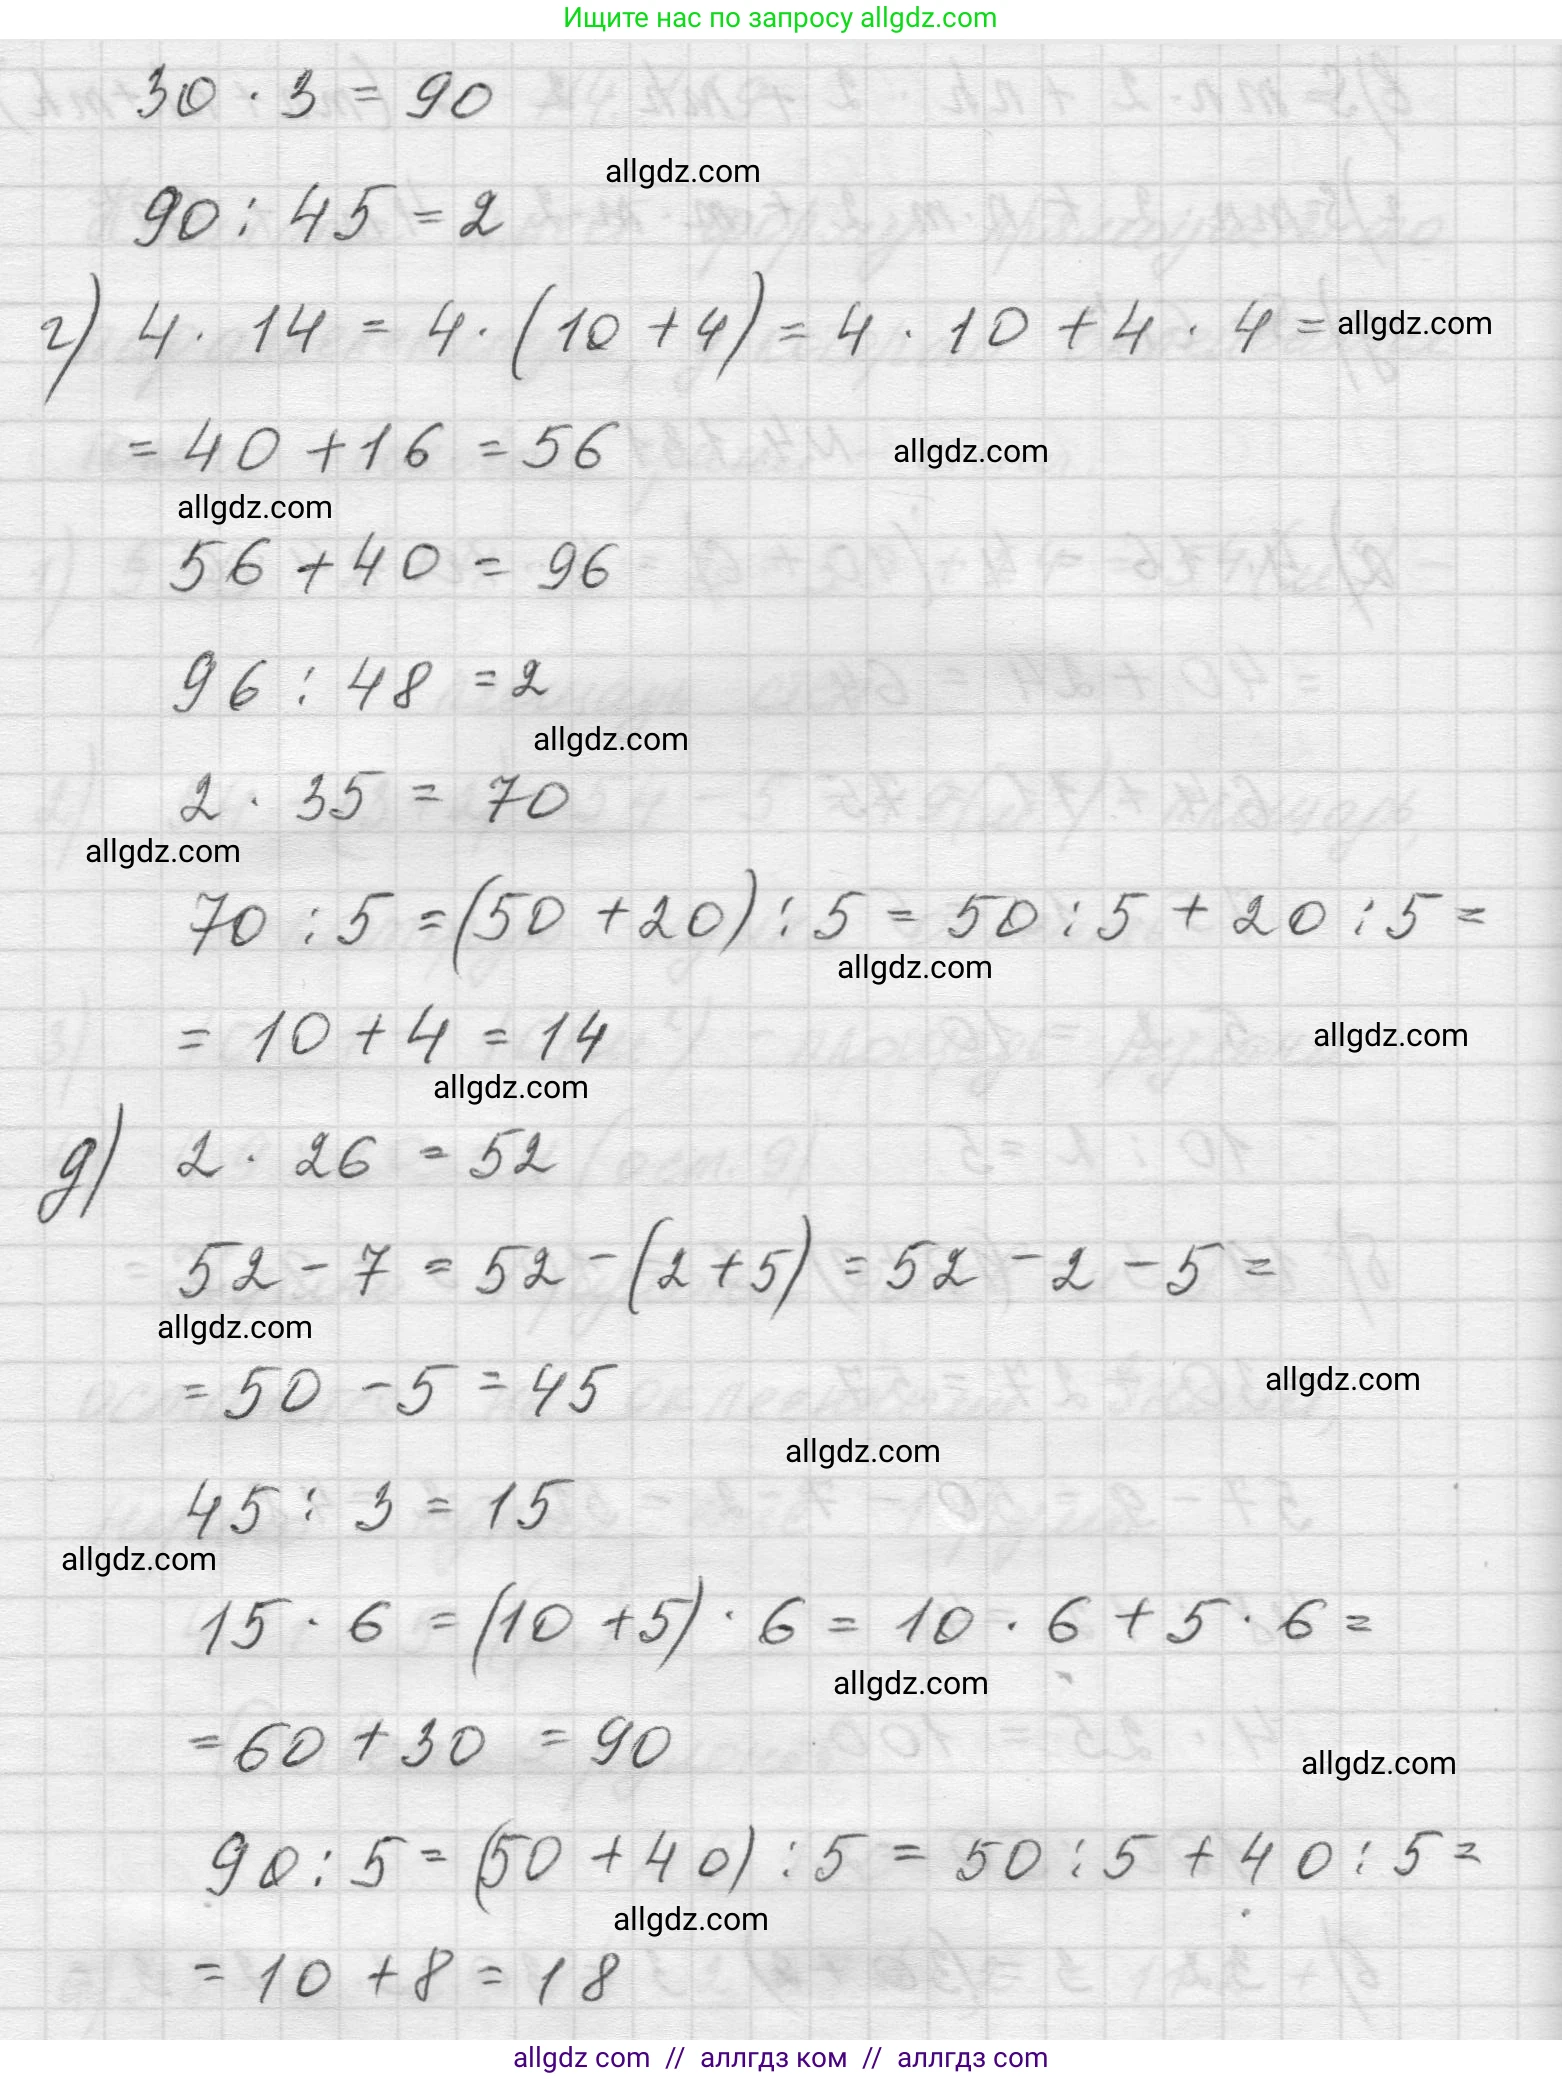 Ищите нас по запросу allgdz.com
30 · 3 = 90
allgdz.com
90 : 45 = 2
г) 4 · 14 = 4 · (10 + 4) = 4 · 10 + 4 · 4 = allgdz.com
= 40 + 16 = 56 allgdz.com
allgdz.com
56 + 40 = 96
96 : 48 = 2
allgdz.com
2 · 35 = 70
allgdz.com
70 : 5 = (50 + 20) : 5 = 50 : 5 + 20 : 5 =
allgdz.com
= 10 + 4 = 14 allgdz.com
allgdz.com
д) 2 · 26 = 52
52 - 7 = 52 - (2 + 5) = 52 - 2 - 5 =
allgdz.com
= 50 - 5 = 45 allgdz.com
allgdz.com
45 : 3 = 15
allgdz.com
15 · 6 = (10 + 5) · 6 = 10 · 6 + 5 · 6 =
allgdz.com
= 60 + 30 = 90 allgdz.com
90 : 5 = (50 + 40) : 5 = 50 : 5 + 40 : 5 =
allgdz.com
= 10 + 8 = 18
allgdz com // аллгдз ком // аллгдз com